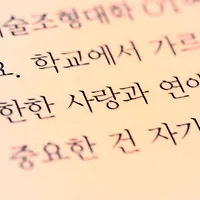 술조형대학 01
요. 학교에서 가르
한한 사랑과 연애
중요한 건 자기